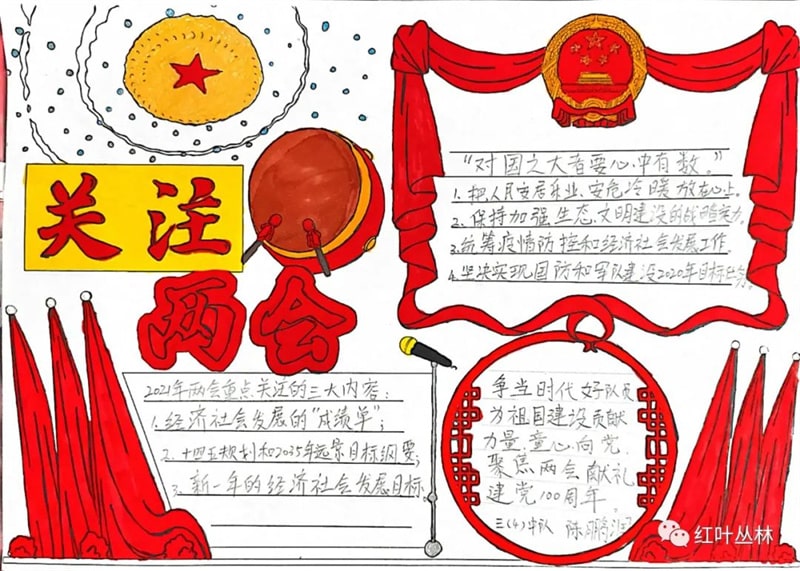 关注
两会
"对国之大者要心中有数。"
1. 把人民安居乐业、安危冷暖放在心上。
2. 保持加强生态文明建设的战略定力。
3. 统筹疫情防控和经济社会发展工作。
4. 坚决实现国防和军队建设2020年目标任务。
2021年两会重点关注的三大内容:
1. 经济社会发展的"成绩单";
2. 十四五规划和2035年远景目标纲要;
3. 新一年的经济社会发展目标。
争当时代好队员
为祖国建设贡献
力量,童心向党,
聚焦两会献礼
建党100周年
三(4)中队 陈鹏
红叶丛林